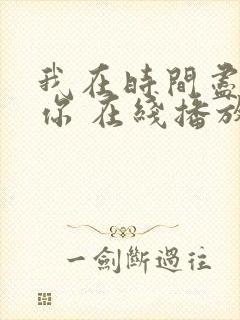 我在時間盡
你 在綫播放
一劍斷過往